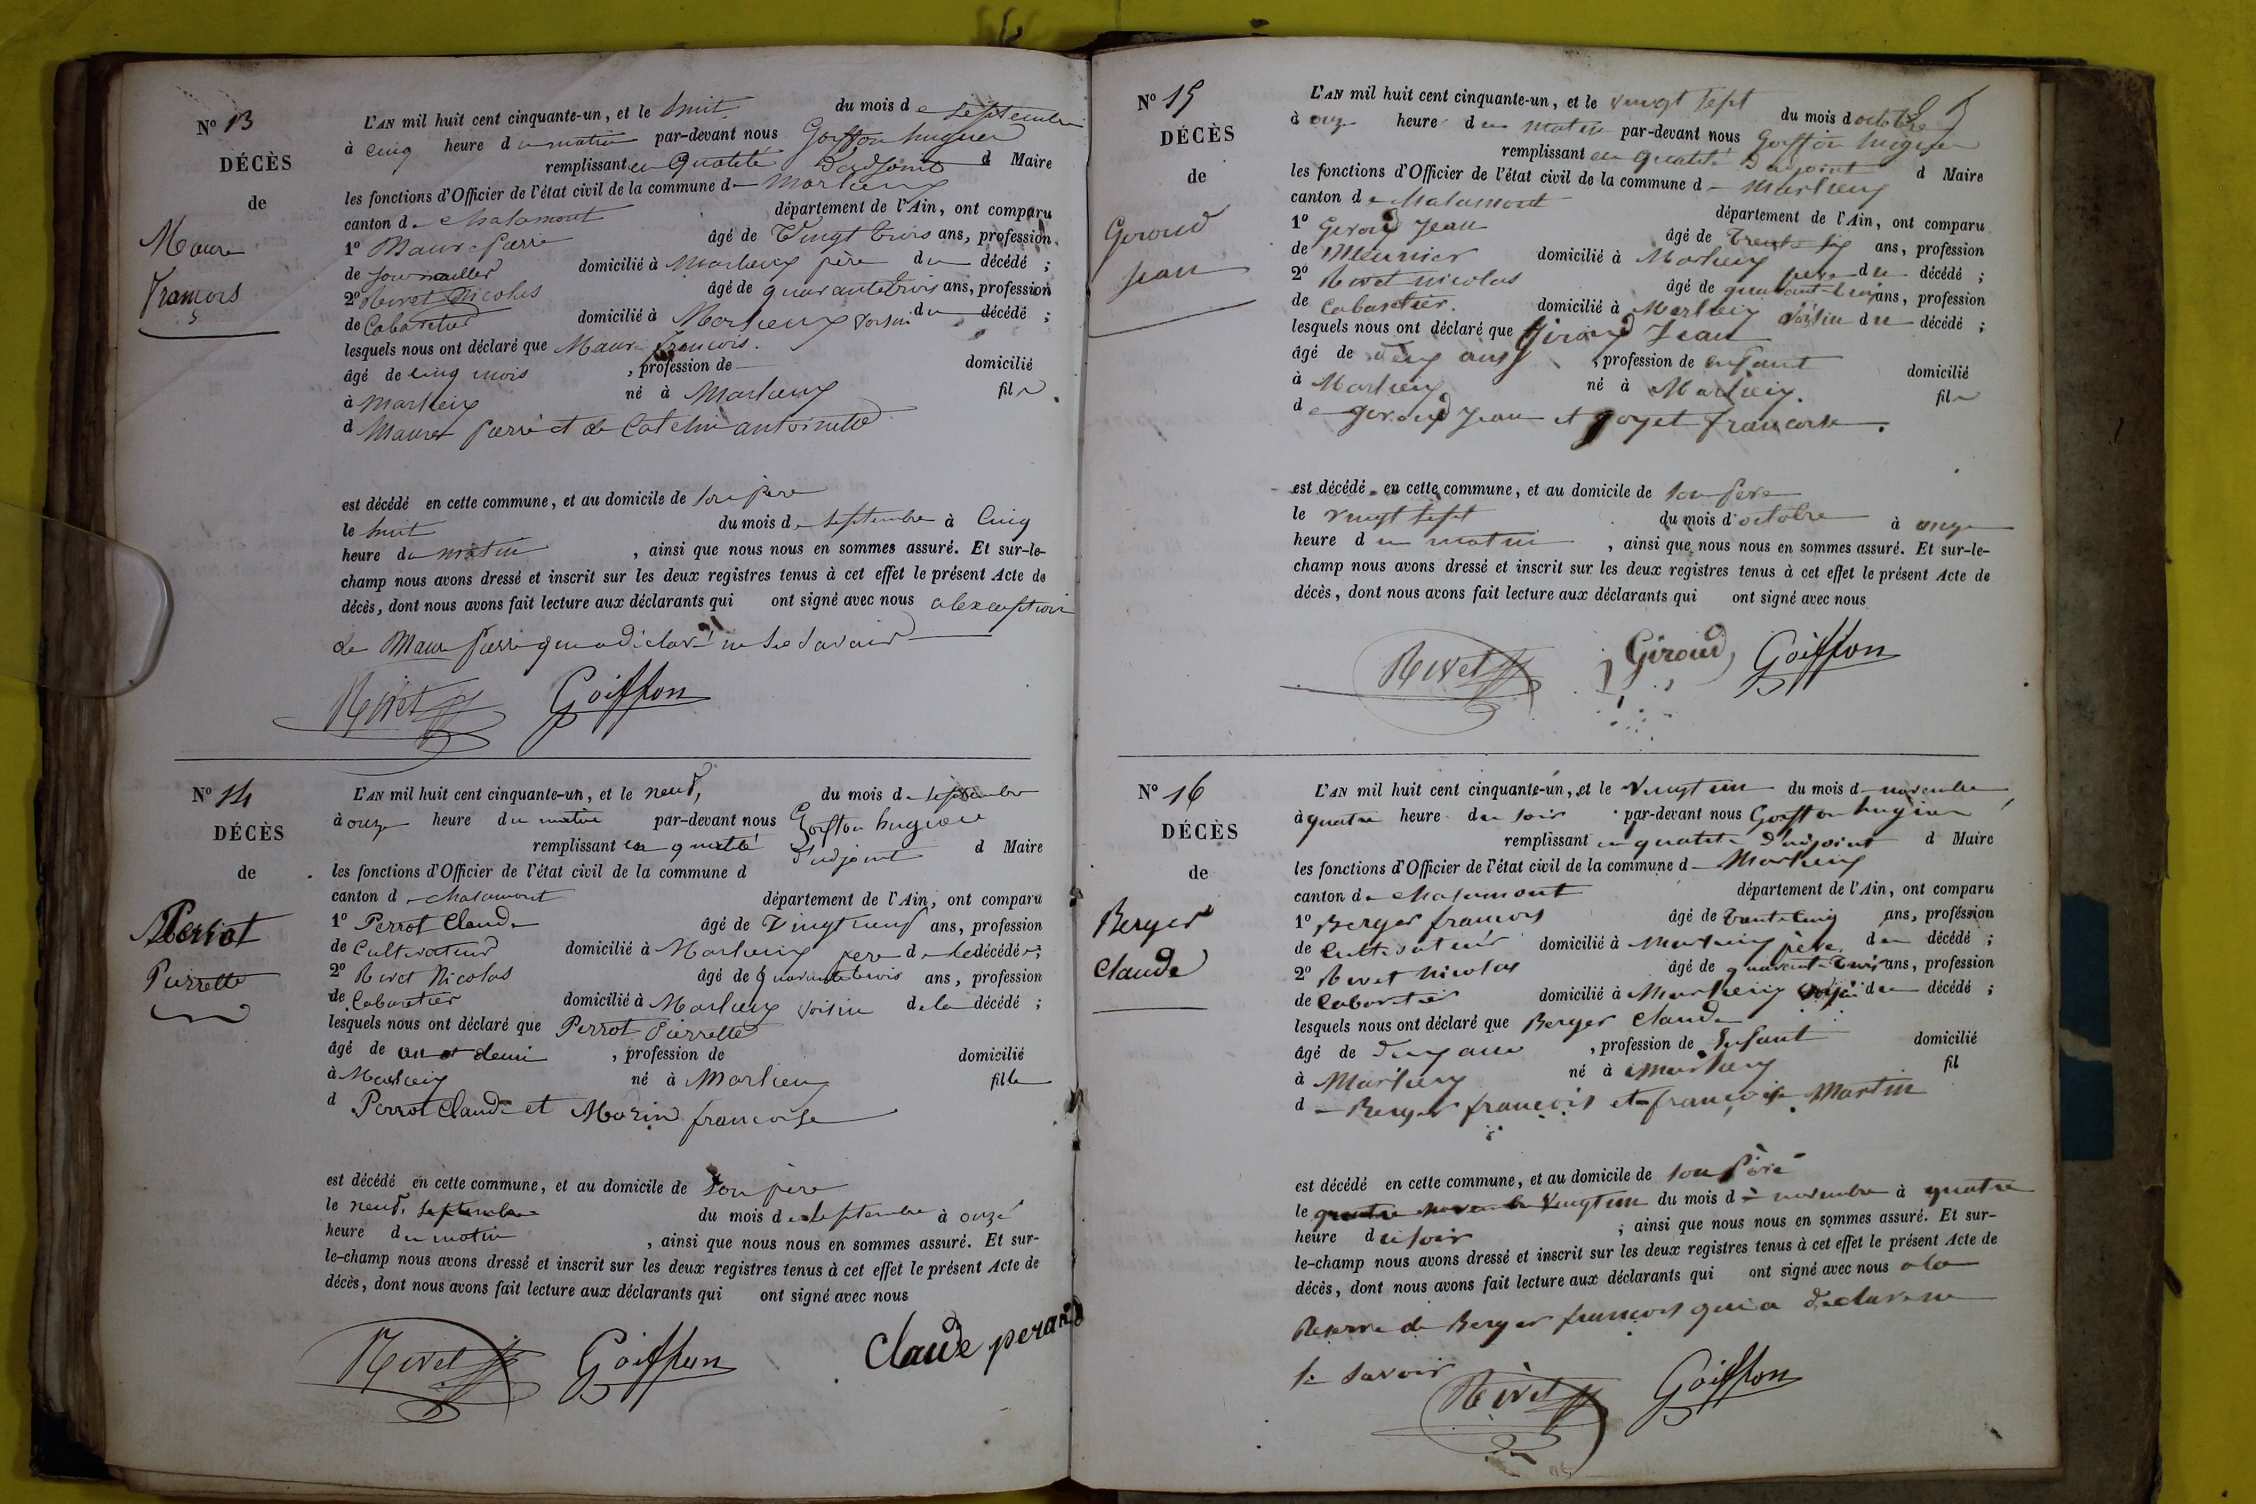 N° 13
DÉCÈS
de
Maure
François
L'AN mil huit cent cinquante-un, et le huit du mois de septembre
à cinq heure du matin par-devant nous Goiffon hugues
remplissant en qualité d'adjoint d Maire
les fonctions d'Officier de l'état civil de la commune de Marlieux
canton de Chalamont département de l'Ain, ont comparu
1° Maure Pierre âgé de Vingt trois ans, profession
de journallier domicilié à Marlieux père du décédé ;
2° Rivet Nicolas âgé de quarante trois ans, profession
de Cabaretier domicilié à Marlieux voisin du décédé ;
lesquels nous ont déclaré que Maure françois.
âgé de cinq mois , profession de domicilié
à Marlieux né à Marlieux fils
d Maure Pierre et de Catelin antoinette
est décédé en cette commune, et au domicile de son père
le huit du mois de septembre à Cinq
heure du matin , ainsi que nous nous en sommes assuré. Et sur-le-
champ nous avons dressé et inscrit sur les deux registres tenus à cet effet le présent Acte de
décès, dont nous avons fait lecture aux déclarants qui ont signé avec nous alexception
de Maure Pierre qui a déclaré ne le savoir
Rivet Goiffon
N° 14
DÉCÈS
de
Perrot
Pierrette
L'AN mil huit cent cinquante-un, et le neuf, du mois de septembre
à onze heure du matin par-devant nous Goiffon hugues
remplissant en qualité d'adjoint d Maire
les fonctions d'Officier de l'état civil de la commune d
canton de Chalamont département de l'Ain, ont comparu
1° Perrot Claude âgé de Vingt neuf ans, profession
de Cultivateur domicilié à Marlieux père de la décédé ;
2° Rivet Nicolas âgé de quarante trois ans, profession
de Cabaretier domicilié à Marlieux voisin de la décédé ;
lesquels nous ont déclaré que Perrot Pierrette
âgé de an et demi , profession de domicilié
à Marlieux né à Marlieux fille
d Perrot Claude et Mazin françoise
est décédé en cette commune, et au domicile de son père
le neuf, septembre du mois de septembre à onze
heure du matin , ainsi que nous nous en sommes assuré. Et sur-
le-champ nous avons dressé et inscrit sur les deux registres tenus à cet effet le présent Acte de
décès, dont nous avons fait lecture aux déclarants qui ont signé avec nous
Rivet Goiffon Claude
N° 15
DÉCÈS
de
Giroud
Jean
L'AN mil huit cent cinquante-un, et le vingt sept du mois d octobre
à onze heure du matin par-devant nous Goiffon hugues
remplissant en qualité d'adjoint d Maire
les fonctions d'Officier de l'état civil de la commune de Marlieux
canton de Chalamont département de l'Ain, ont comparu
1° Giroud Jean âgé de trente six ans, profession
de Meunier domicilié à Marlieux père du décédé ;
2° Rivet nicolas âgé de quarante-trois ans, profession
de Cabaretier. domicilié à Marlieux voisin du décédé ;
lesquels nous ont déclaré que Giroud Jean
âgé de deux ans , profession de enfant domicilié
à Marlieux né à Marlieux. fils
de giroud Jean et goyet françoise.
est décédé en cette commune, et au domicile de son père
le vingt sept du mois d'octobre à onze
heure du matin , ainsi que nous nous en sommes assuré. Et sur-le-
champ nous avons dressé et inscrit sur les deux registres tenus à cet effet le présent Acte de
décès, dont nous avons fait lecture aux déclarants qui ont signé avec nous
Rivet Giroud Goiffon
N° 16
DÉCÈS
de
Berger
Claude
L'AN mil huit cent cinquante-un, et le Vingt un du mois de novembre
à quatre heure du soir par-devant nous Goiffon hugues
remplissant en qualité d'adjoint d Maire
les fonctions d'Officier de l'état civil de la commune de Marlieux
canton de Chalamont département de l'Ain, ont comparu
1° Berger françois âgé de trente cinq ans, profession
de Cultivateur domicilié à Marlieux père du décédé ;
2° Rivet nicolas âgé de quarante-trois ans, profession
de Cabaretier domicilié à Marlieux voisin du décédé ;
lesquels nous ont déclaré que Berger Claude
âgé de deux ans , profession de Enfant domicilié
à Marlieux né à Marlieux fil
de Berger françois et françoise Martin
est décédé en cette commune, et au domicile de son Père
le quatre novembre Vingt un du mois de novembre à quatre
heure du soir ; ainsi que nous nous en sommes assuré. Et sur-
le-champ nous avons dressé et inscrit sur les deux registres tenus à cet effet le présent Acte de
décès, dont nous avons fait lecture aux déclarants qui ont signé avec nous ala
Reserve de Berger françois qui a declare ne
le savoir
Rivet Goiffon